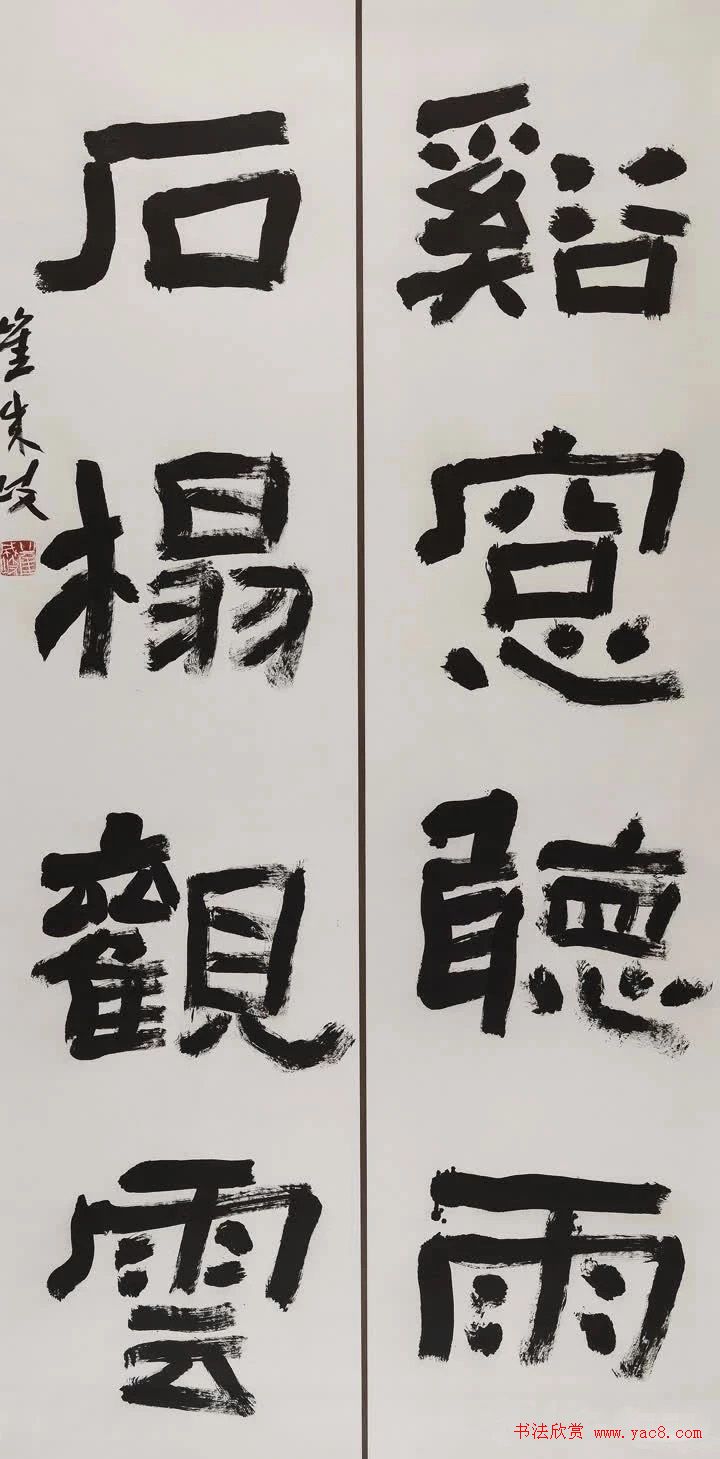 谿窻聽雨
石榻觀雲
崔
书法欣赏 www.yac8.com